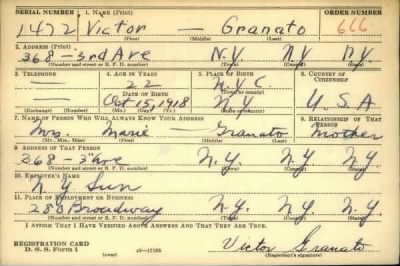 SERIAL NUMBER 1. NAME (Print) ORDER NUMBER
1472 Victor — Granato 666
(First) (Middle) (Last)
2. ADDRESS (Print)
368 - 3rd Ave N.Y. N.Y. N.Y.
(Number and street or R. F. D. number) (Town) (County) (State)
3. TELEPHONE 4. AGE IN YEARS 5. PLACE OF BIRTH 6. COUNTRY OF CITIZENSHIP
— 22 N.Y.C.
DATE OF BIRTH (Town or county)
— Oct 15, 1918 N.Y. U.S.A
(Exchange) (Number) (Mo.) (Day) (Yr.) (State or country)
7. NAME OF PERSON WHO WILL ALWAYS KNOW YOUR ADDRESS 8. RELATIONSHIP OF THAT PERSON
Mrs. Marie — Granato Mother
(Mr., Mrs., Miss) (First) (Middle) (Last)
9. ADDRESS OF THAT PERSON
368 - 3rd Ave N.Y. N.Y. N.Y.
(Number and street or R. F. D. number) (Town) (County) (State)
10. EMPLOYER'S NAME
N.Y. Sun
11. PLACE OF EMPLOYMENT OR BUSINESS
280 Broadway N.Y. N.Y. N.Y.
(Number and street or R. F. D. number) (Town) (County) (State)
I AFFIRM THAT I HAVE VERIFIED ABOVE ANSWERS AND THAT THEY ARE TRUE.
REGISTRATION CARD
D. S. S. Form 1 (over) 16-17105 Victor Granato
(Registrant's signature)